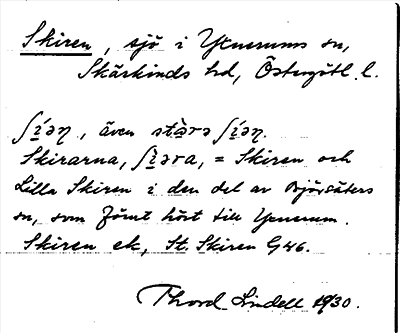 Skiren, sjö i Yxnerums sn,
Skärkinds hd, Östergötl. l.
ʃíən, även stæ̀rə ʃíən.
Skirarna, ʃìəra, = Skiren och
Lilla Skiren i den del av Björsäters
sn, som förut hört till Yxnerum.
Skiren ek, St. Skiren G 46.
Thord Lindell 1930.